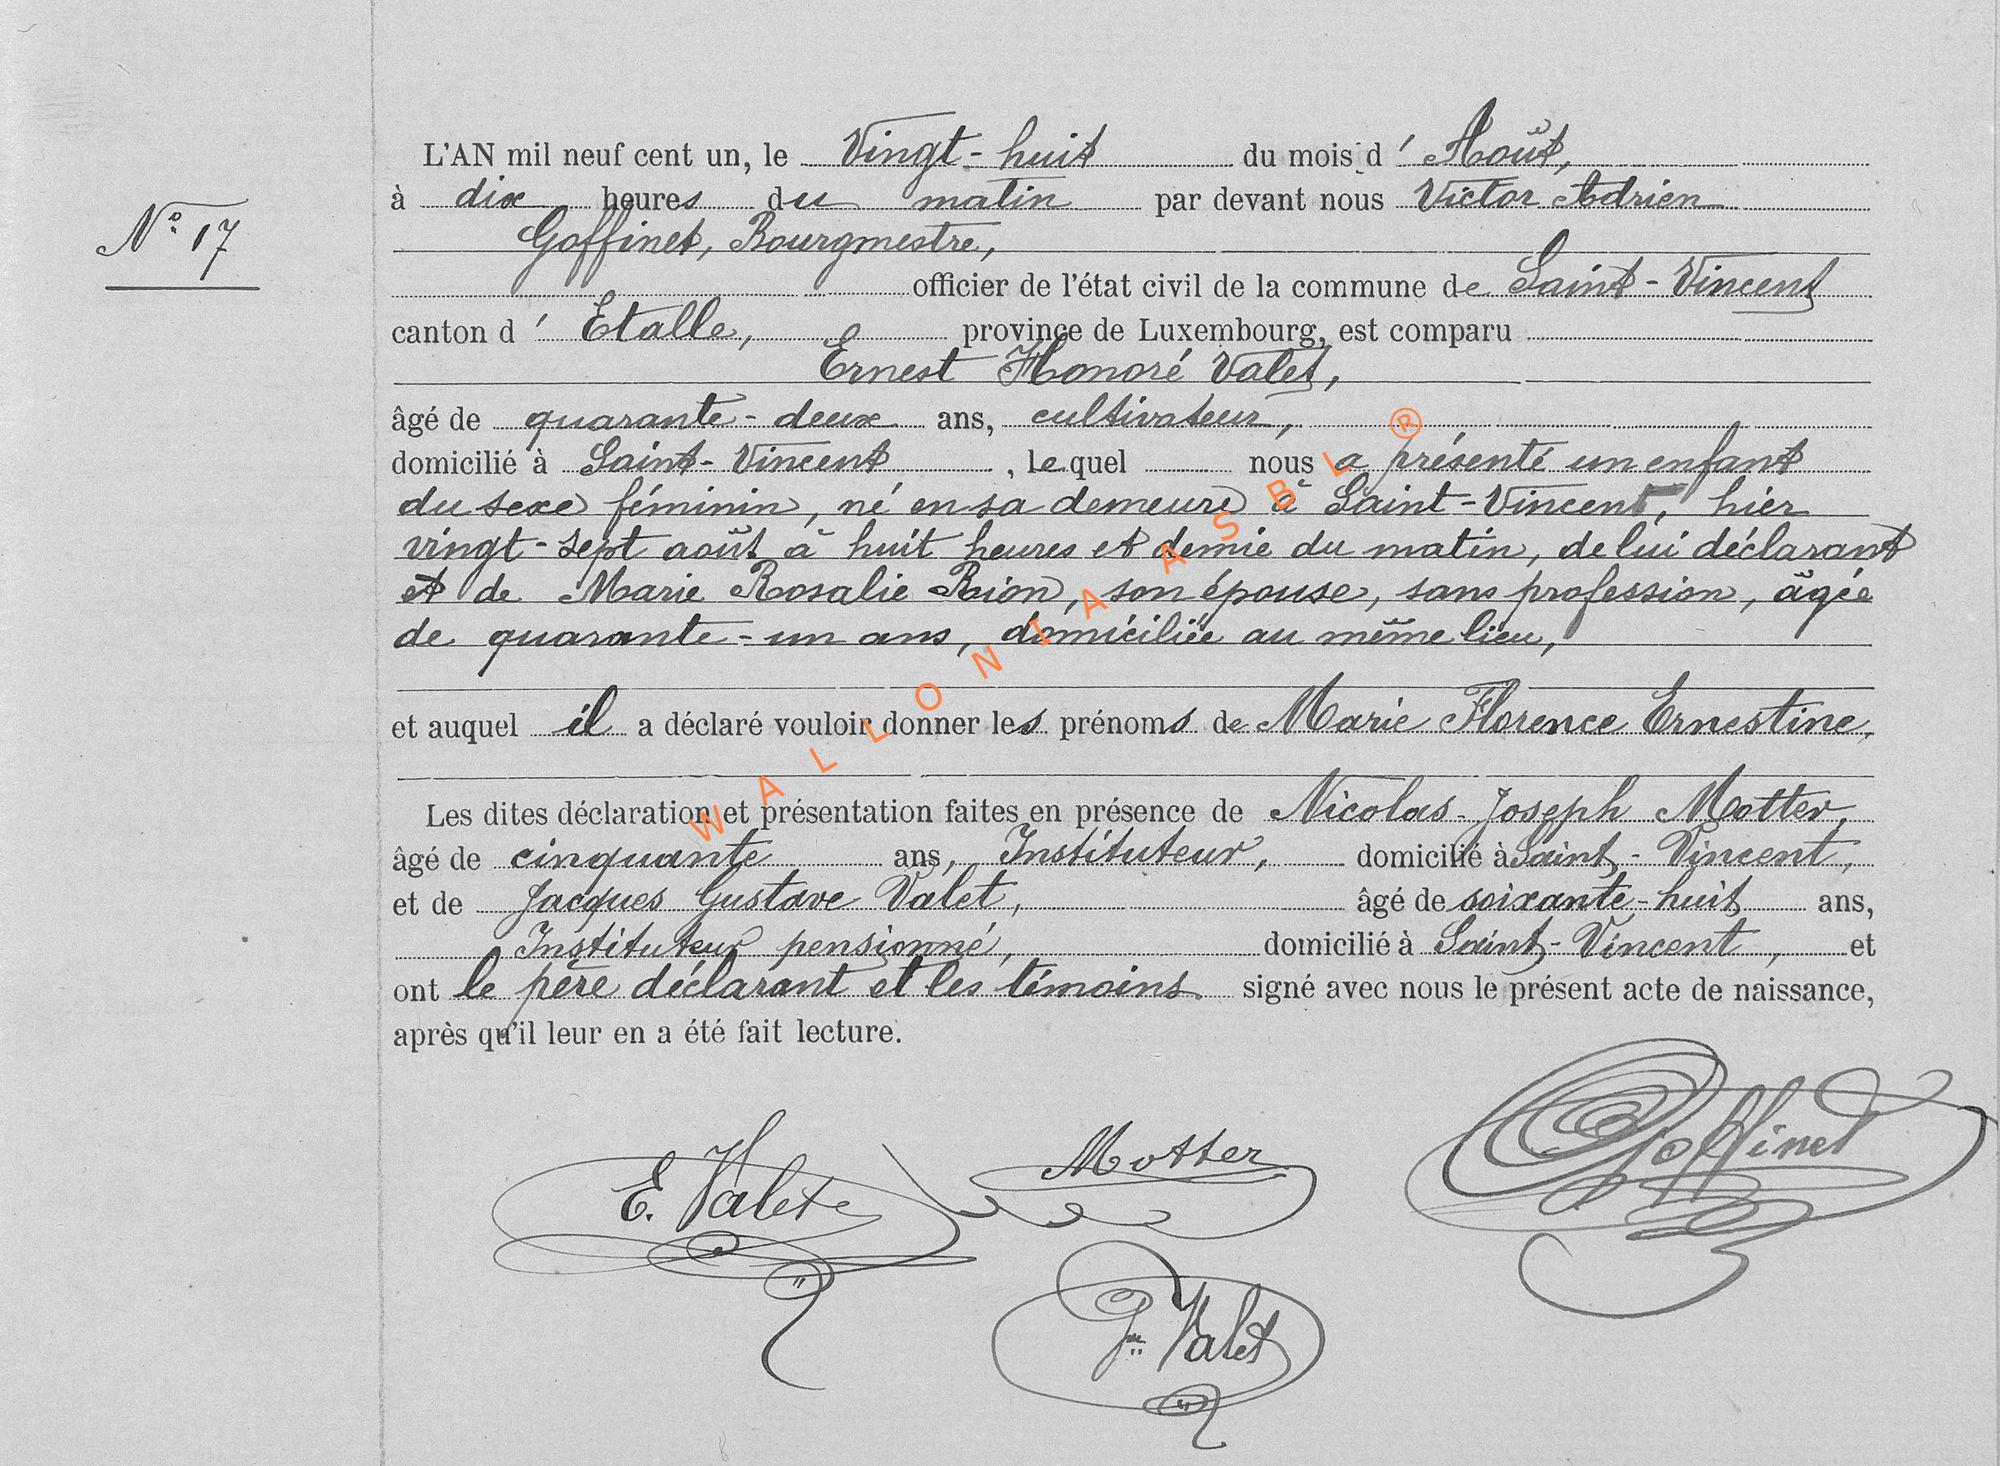 N° 17
L'AN mil neuf cent un, le Vingt-huit du mois d' Août,
à dix heures du matin par devant nous Victor Adrien
Goffinet, Bourgmestre,
officier de l'état civil de la commune de Saint-Vincent
canton d' Etalle, province de Luxembourg, est comparu
Ernest Honoré Valet,
âgé de quarante-deux ans, cultivateur,
domicilié à Saint-Vincent, lequel nous a présenté un enfant
du sexe féminin, né en sa demeure à Saint-Vincent, hier
vingt-sept août à huit heures et demie du matin, de lui déclarant
et de Marie Rosalie Rion, son épouse, sans profession, âgée
de quarante-un ans, domiciliée au même lieu,
et auquel il a déclaré vouloir donner les prénoms de Marie Florence Ernestine,
Les dites déclaration et présentation faites en présence de Nicolas-Joseph Motter,
âgé de cinquante ans, Instituteur, domicilié à Saint-Vincent,
et de Jacques Gustave Valet, âgé de soixante-huit ans,
Instituteur pensionné, domicilié à Saint-Vincent, et
ont le père déclarant et les témoins signé avec nous le présent acte de naissance,
après qu'il leur en a été fait lecture.
E. Valet
Motter
Goffinet
Valet
WALLONIA ASBL ®